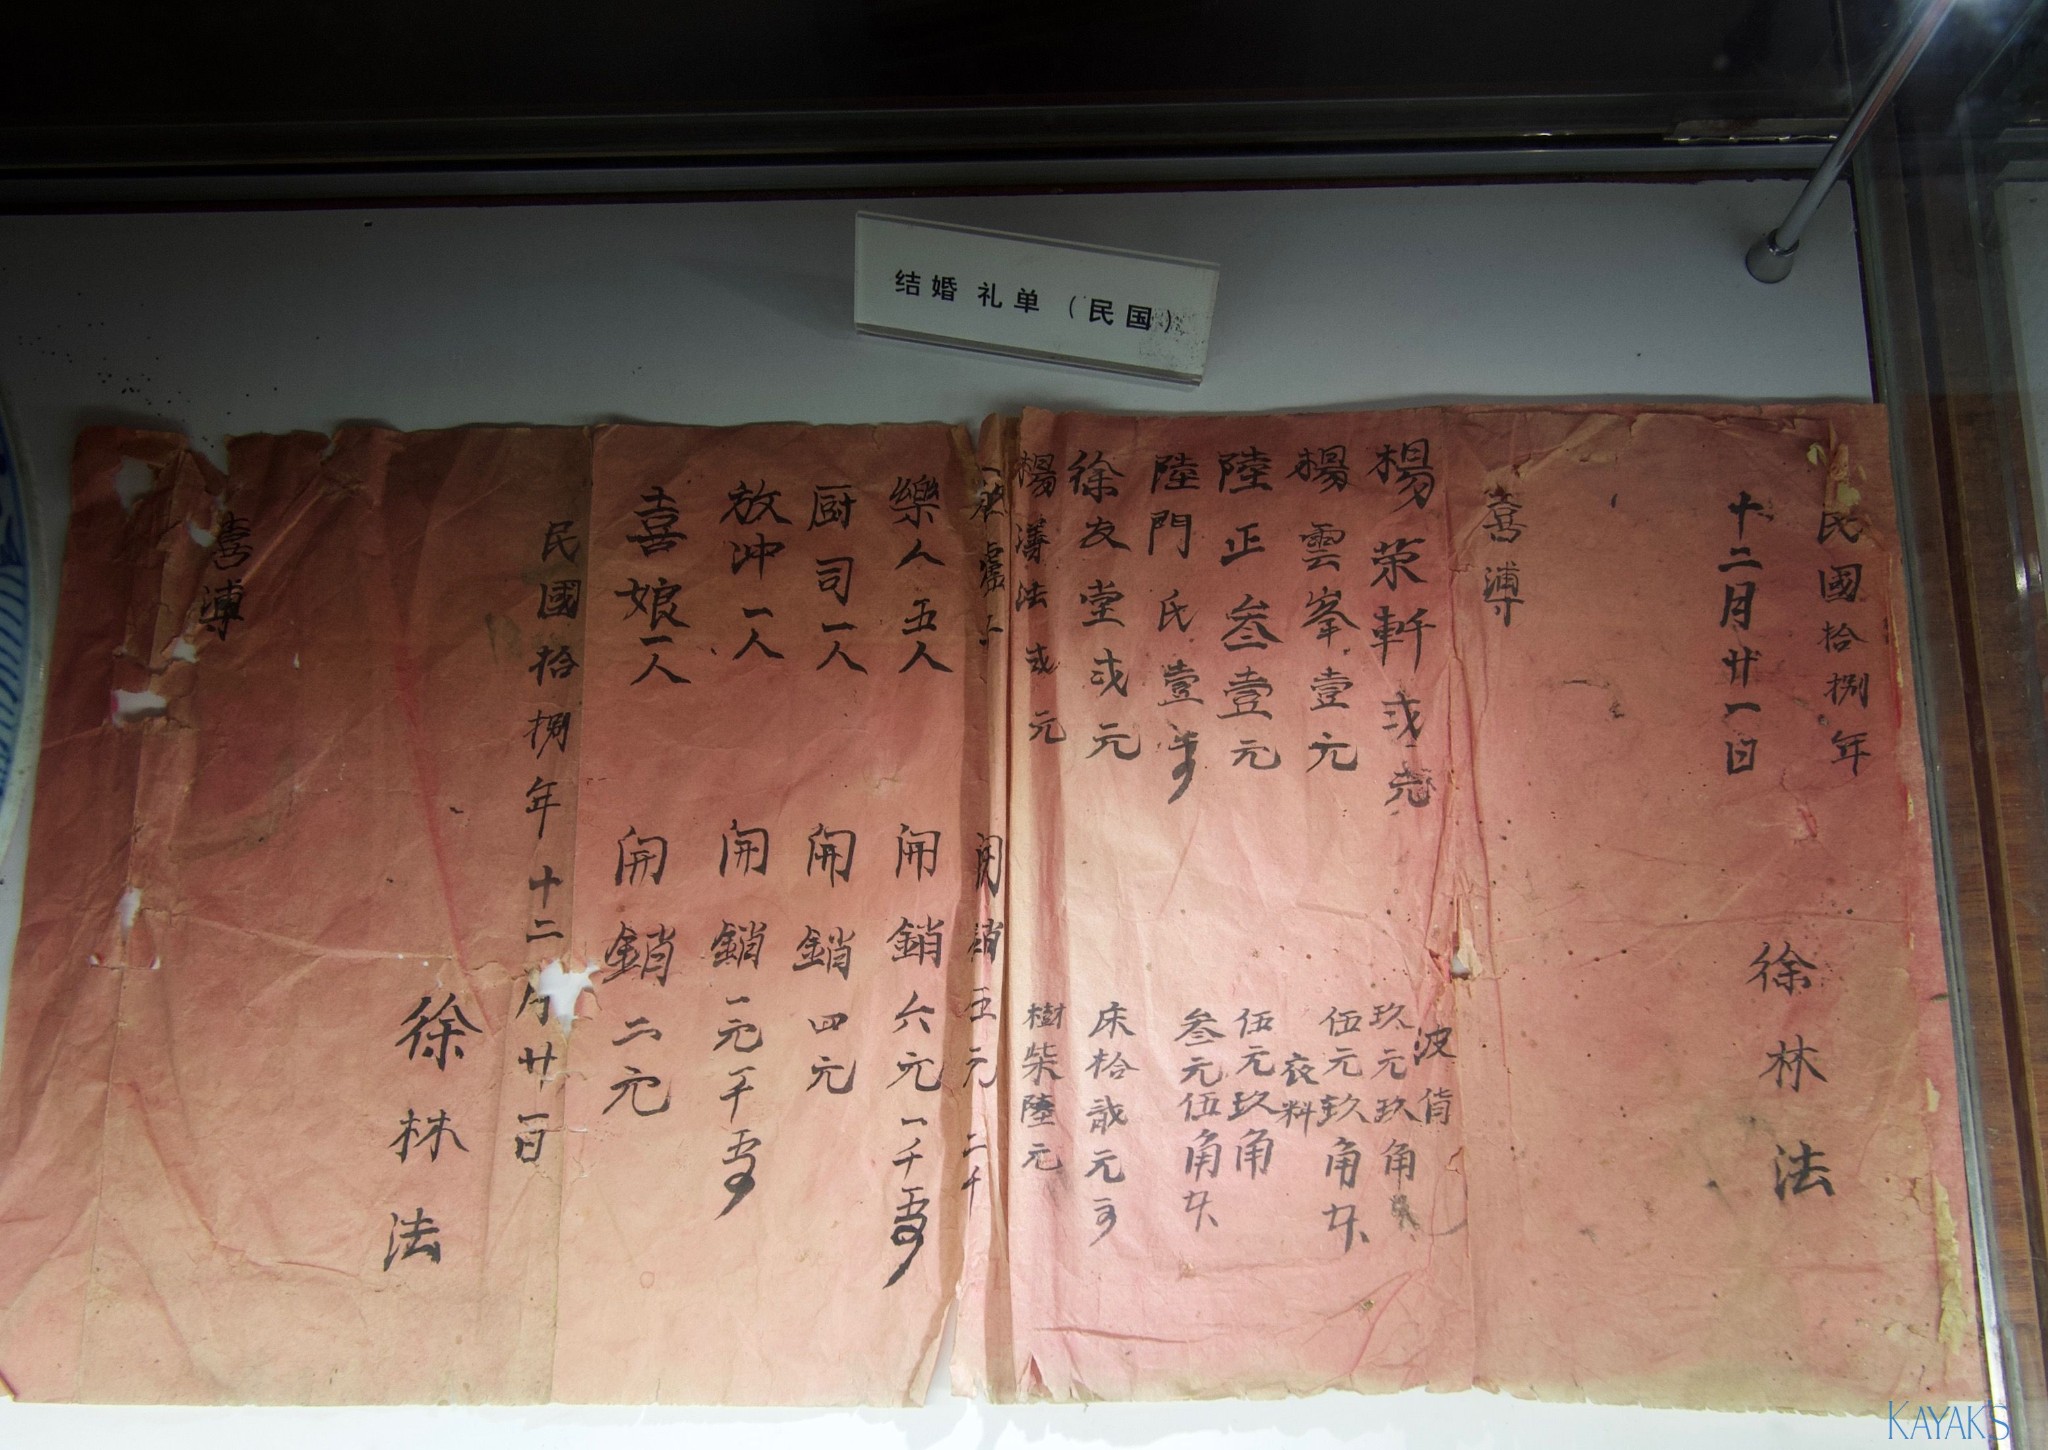 结婚 礼单 （民国）
民國拾捌年
十二月廿一日
徐林法
喜溥
楊荣軒弍元
波貨
玖元玖角
楊雲峯壹元
伍元玖角
衣料
陸正叁壹元
伍元玖角
陸門氏壹
叁元伍角
徐友堂弍元
床拾
元
楊 法弍元
樹柴陸元
開銷五元二千
樂人五人 開銷六元一千
厨司一人 開銷四元
放冲一人 開銷一元一千
喜娘一人 開銷二元
民國拾捌年十二月廿一日
徐林法
喜溥
KAYAKS